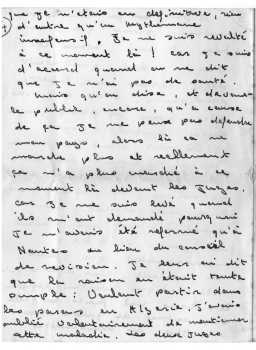 que je n'étais en définitive, rien
d'autre qu'un mythomane
inoffensif. Je me suis révolté
à ce moment là ! car je suis
d'accord quand on me dit
que je n'ai pas de santé.
mais qu'on dise, et devant
le public, encore, qu'à cause
de ça je ne peux pas défendre
mon pays, alors là ça ne
marche plus et réellement
ça n'a plus marché à ce
moment là devant les juges.
car je me suis levé quand
ils m'ont demandé pourquoi
je n'avais été réformé qu'à
Nantes au lieu du conseil
de révision. Je leur ai dit
que la raison en était toute
simple : Voulant partir dans
les paras en Algérie, j'avais
oublié volontairement de mentionner
cette maladie. Les deux juges